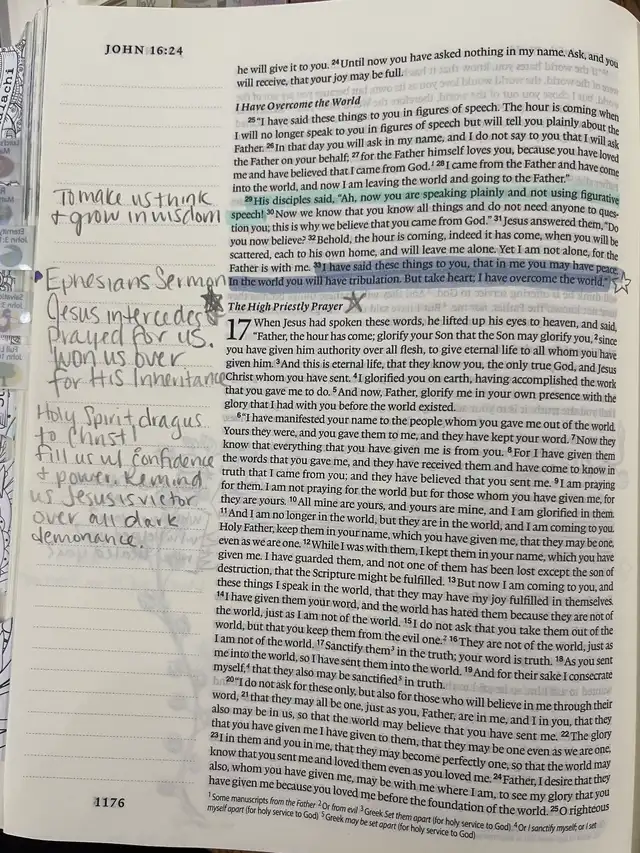 JOHN 16:24
he will give it to you. 24Until now you have asked nothing in my name. Ask, and you
will receive, that your joy may be full.
I Have Overcome the World
25“I have said these things to you in figures of speech. The hour is coming when
I will no longer speak to you in figures of speech but will tell you plainly about the
Father. 26In that day you will ask in my name, and I do not say to you that I will ask
the Father on your behalf; 27for the Father himself loves you, because you have loved
me and have believed that I came from God.1 28I came from the Father and have come
into the world, and now I am leaving the world and going to the Father.”
29His disciples said, “Ah, now you are speaking plainly and not using figurative
speech! 30Now we know that you know all things and do not need anyone to ques-
tion you; this is why we believe that you came from God.” 31Jesus answered them, “Do
you now believe? 32Behold, the hour is coming, indeed it has come, when you will be
scattered, each to his own home, and will leave me alone. Yet I am not alone, for the
Father is with me. 33I have said these things to you, that in me you may have peace.
In the world you will have tribulation. But take heart; I have overcome the world.”
The High Priestly Prayer
17 When Jesus had spoken these words, he lifted up his eyes to heaven, and said,
“Father, the hour has come; glorify your Son that the Son may glorify you, 2since
you have given him authority over all flesh, to give eternal life to all whom you have
given him. 3And this is eternal life, that they know you, the only true God, and Jesus
Christ whom you have sent. 4I glorified you on earth, having accomplished the work
that you gave me to do. 5And now, Father, glorify me in your own presence with the
glory that I had with you before the world existed.
6“I have manifested your name to the people whom you gave me out of the world.
Yours they were, and you gave them to me, and they have kept your word. 7Now they
know that everything that you have given me is from you. 8For I have given them
the words that you gave me, and they have received them and have come to know in
truth that I came from you; and they have believed that you sent me. 9I am praying
for them. I am not praying for the world but for those whom you have given me, for
they are yours. 10All mine are yours, and yours are mine, and I am glorified in them.
11And I am no longer in the world, but they are in the world, and I am coming to you.
Holy Father, keep them in your name, which you have given me, that they may be one,
even as we are one. 12While I was with them, I kept them in your name, which you have
given me. I have guarded them, and not one of them has been lost except the son of
destruction, that the Scripture might be fulfilled. 13But now I am coming to you, and
these things I speak in the world, that they may have my joy fulfilled in themselves.
14I have given them your word, and the world has hated them because they are not of
the world, just as I am not of the world. 15I do not ask that you take them out of the
world, but that you keep them from the evil one.2 16They are not of the world, just as
I am not of the world. 17Sanctify them3 in the truth; your word is truth. 18As you sent
me into the world, so I have sent them into the world. 19And for their sake I consecrate
myself,4 that they also may be sanctified5 in truth.
20“I do not ask for these only, but also for those who will believe in me through their
word, 21that they may all be one, just as you, Father, are in me, and I in you, that they
also may be in us, so that the world may believe that you have sent me. 22The glory
that you have given me I have given to them, that they may be one even as we are one,
23I in them and you in me, that they may become perfectly one, so that the world may
know that you sent me and loved them even as you loved me. 24Father, I desire that they
also, whom you have given me, may be with me where I am, to see my glory that you
have given me because you loved me before the foundation of the world. 25O righteous
1 Some manuscripts from the Father 2 Or from evil 3 Greek Set them apart (for holy service to God) 4 Or I sanctify myself; or I set
myself apart (for holy service to God) 5 Greek may be set apart (for holy service to God)
To make us think
+ grow in wisdom
Ephesians Sermon
Jesus intercedes
prayed for us.
Won us over
for His Inheritance
Holy Spirit drag us
to Christ!
fill us w/ confidence
+ power. Remind
us Jesus is victor
over all dark
demonance.
1176